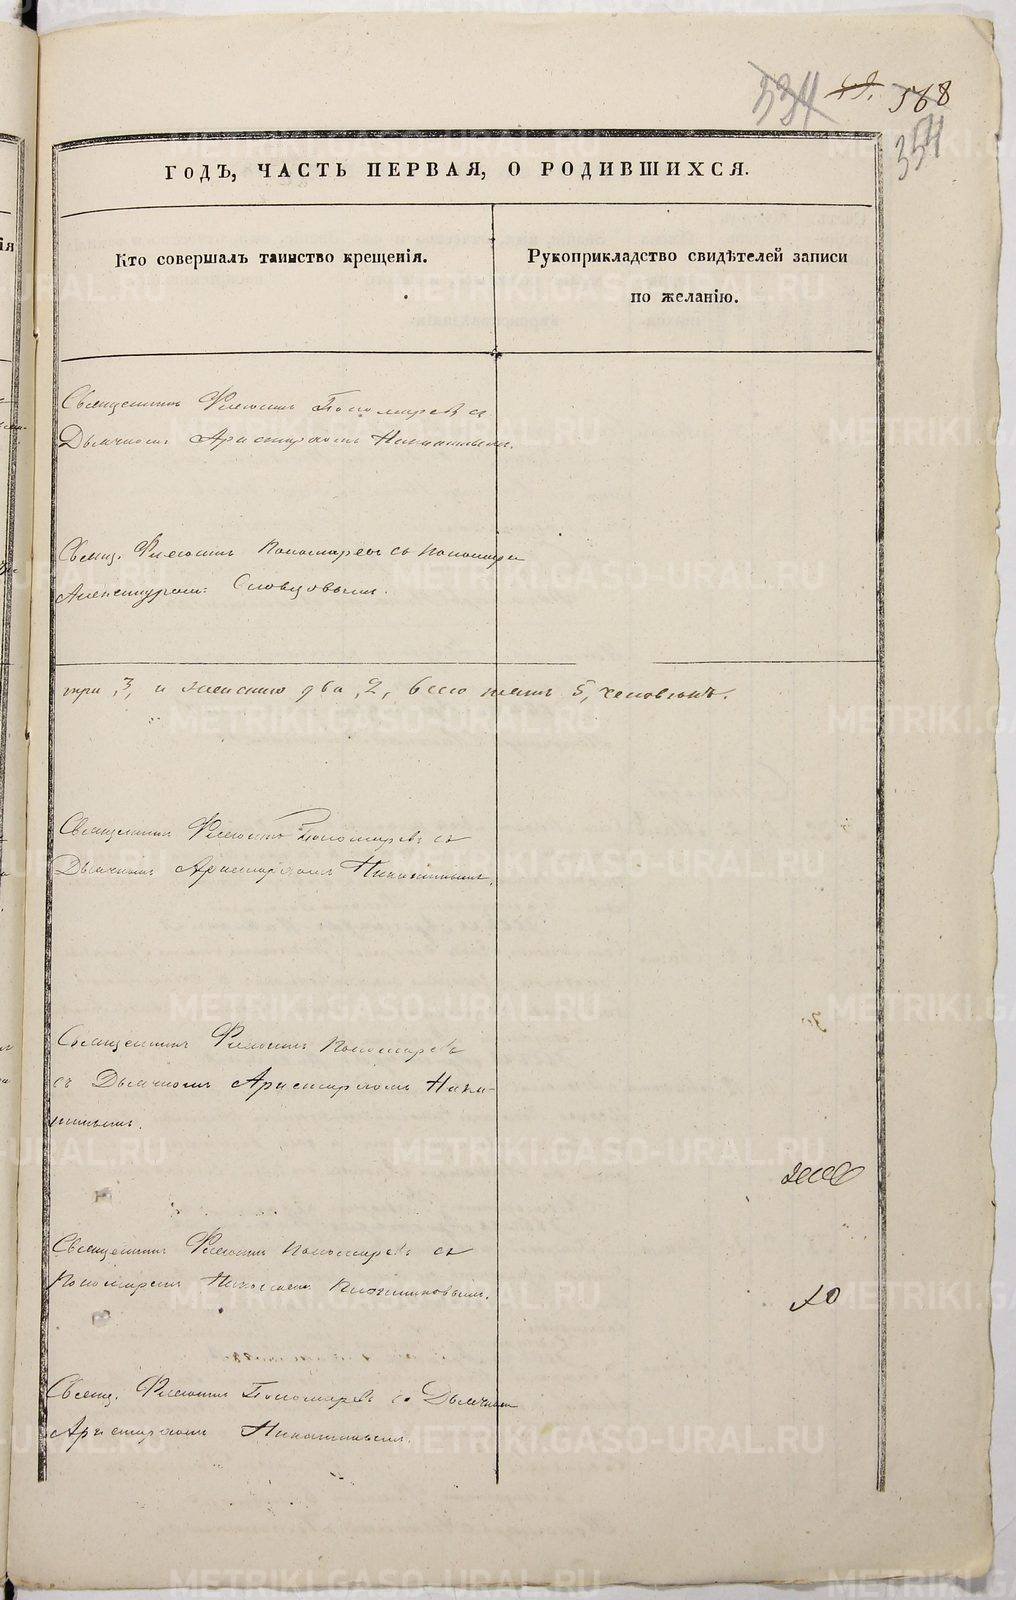 534 49. 568
354
ГОДЪ, ЧАСТЬ ПЕРВАЯ, О РОДИВШИХСЯ.
Кто совершалъ таинство крещенія.
Рукоприкладство свидѣтелей записи
по желанію.
Священникъ Филетъ Пономаревъ съ
Дьячкомъ Аристархомъ Никитинымъ.
Свящ. Пономаревъ съ пономаремъ
Александромъ Словцовымъ.
три, 3, и женскаго два, 2, всего пять 5, человѣкъ.
Священникъ Пономаревъ съ
Дьячкомъ Аристархомъ Никитинымъ.
Священникъ Пономаревъ
съ Дьячкомъ Аристархомъ Ники-
тинымъ.
Священникъ Пономаревъ съ
Пономаремъ Николаемъ
Свящ. Пономаревъ съ Дьячкомъ
Аристархомъ Никитинымъ.
METRIKI.GASO-URAL.RU